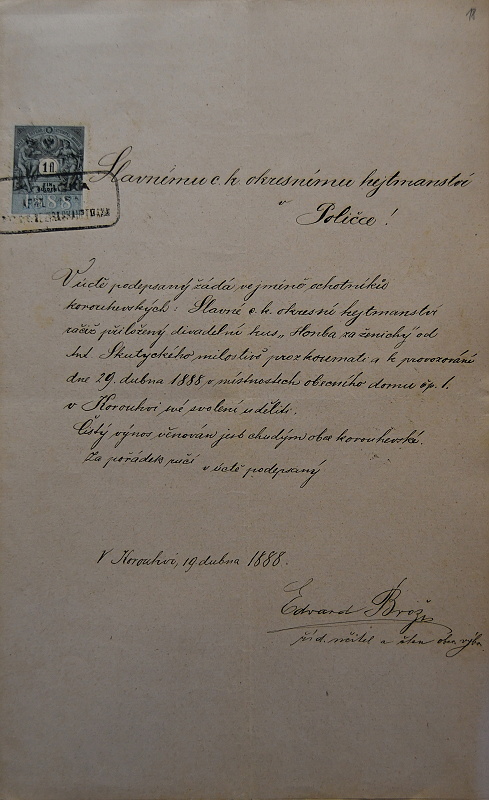 18
1 fl
Slavnému c. k. okresnímu hejtmanství
v
Poličce!
V úctě podepsaný žádá ve jméně ochotníků
korouhevských: Slavné c. k. okresní hejtmanství
račiž přiložený divadelní kus „Honba za ženichy" od
Ant. Skutyckého milostivě prozkoumati a k provozování
dne 29. dubna 1888 v místnostech obecního domu čp. 1.
v Korouhvi své svolení uděliti.
Čistý výnos věnován jest chudým obce korouhevské.
Za pořádek ručí
v úctě podepsaný
V Korouhvi, 19 dubna 1888.
Edvard Brož
říd. učitel a člen obec. výb.